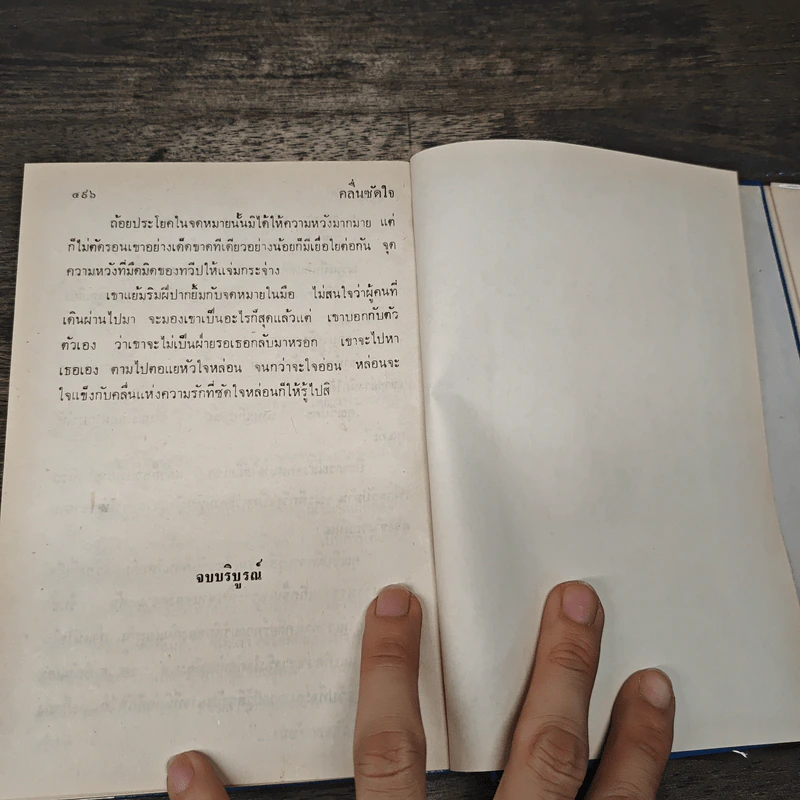 ๔๙๖ คลื่นซัดใจ
ถ้อยประโยคในจดหมายนั้นมิได้ให้ความหวังมากมาย แต่
ก็ไม่ตัดรอนเขาอย่างเด็ดขาดทีเดียวอย่างน้อยก็มีเยื่อใยต่อกัน จุด
ความหวังที่มืดมิดของทวีปให้แจ่มกระจ่าง
เขาแย้มริมฝีปากยิ้มกับจดหมายในมือ ไม่สนใจว่าผู้คนที่
เดินผ่านไปมา จะมองเขาเป็นอะไรก็สุดแล้วแต่ เขาบอกกับตัว
ตัวเอง ว่าเขาจะไม่เป็นฝ่ายรอเธอกลับมาหรอก เขาจะไปหา
เธอเอง ตามไปตอแยหัวใจหล่อน จนกว่าจะใจอ่อน หล่อนจะ
ใจแข็งกับคลื่นแห่งความรักที่ซัดใจหล่อนก็ให้รู้ไปสิ
จบบริบูรณ์